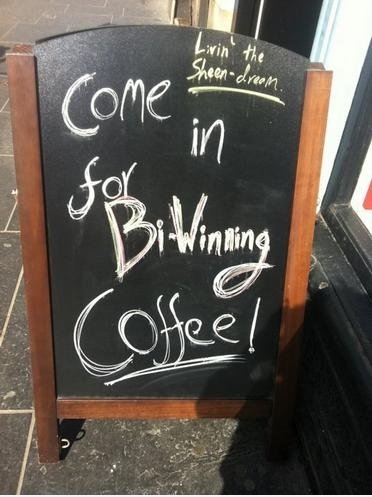 Livin' the
Sheen-dream.
Come
in
for
Bi-Winning
Coffee!